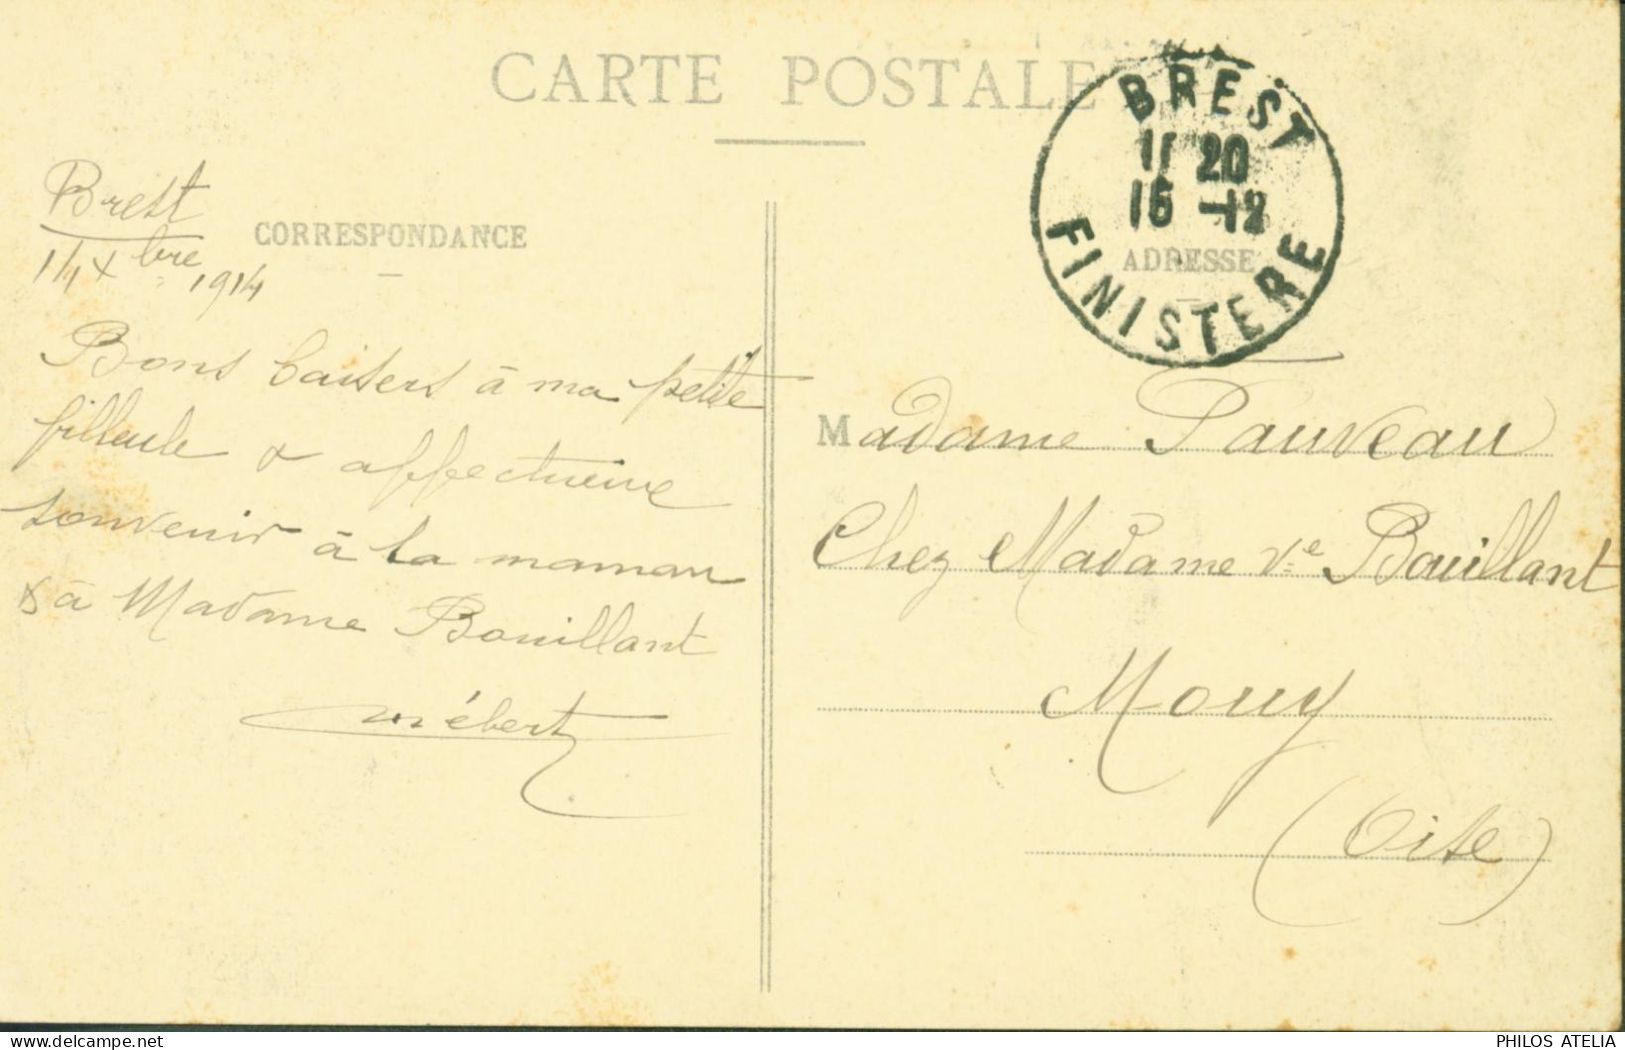 CARTE POSTALE
BREST
11 20
15 -12
FINISTERE
CORRESPONDANCE
ADRESSE
Brest
Xbre 1914
Bons baisers à ma petite
filleule & affectueux
souvenir à la maman
& à Madame Bouillant
Hébert
Madame Pauveau
Chez Madame Ve Bouillant
Mouy
(Oise)
PHILOS ATELIA